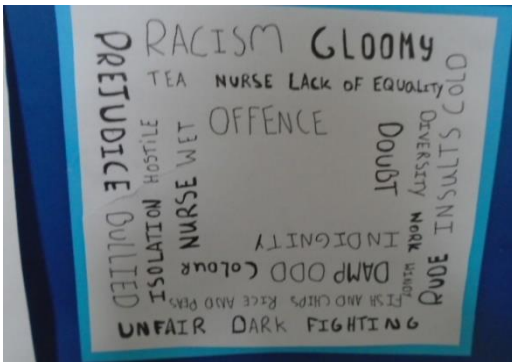 RACISM GLOOMY
TEA NURSE LACK OF EQUALITY
OFFENCE
PREJUDICE BULLIED
ISOLATION HOSTILE
NURSE WET
DOUBT
DIVERSITY WORK WINDY
INSULTS COLD
RUDE
INDIGNITY
DAMP ODD COLOUR
FISH AND CHIPS RICE AND PEAS
UNFAIR DARK FIGHTING